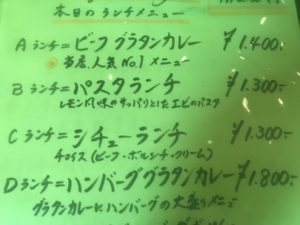 本日のランチメニュー
Aランチ=ビーフグラタンカレー ¥1.400-
当店、人気No.1メニュー
Bランチ=パスタランチ ¥1.300-
レモン風味のサッパリとしたエビのパスタ
Cランチ=シチューランチ ¥1.300-
チョイス(ビーフ・ボルシチ・クリーム)
Dランチ=ハンバーググラタンカレー ¥1.800-
グラタンカレーにハンバーグの大盛りメニュー